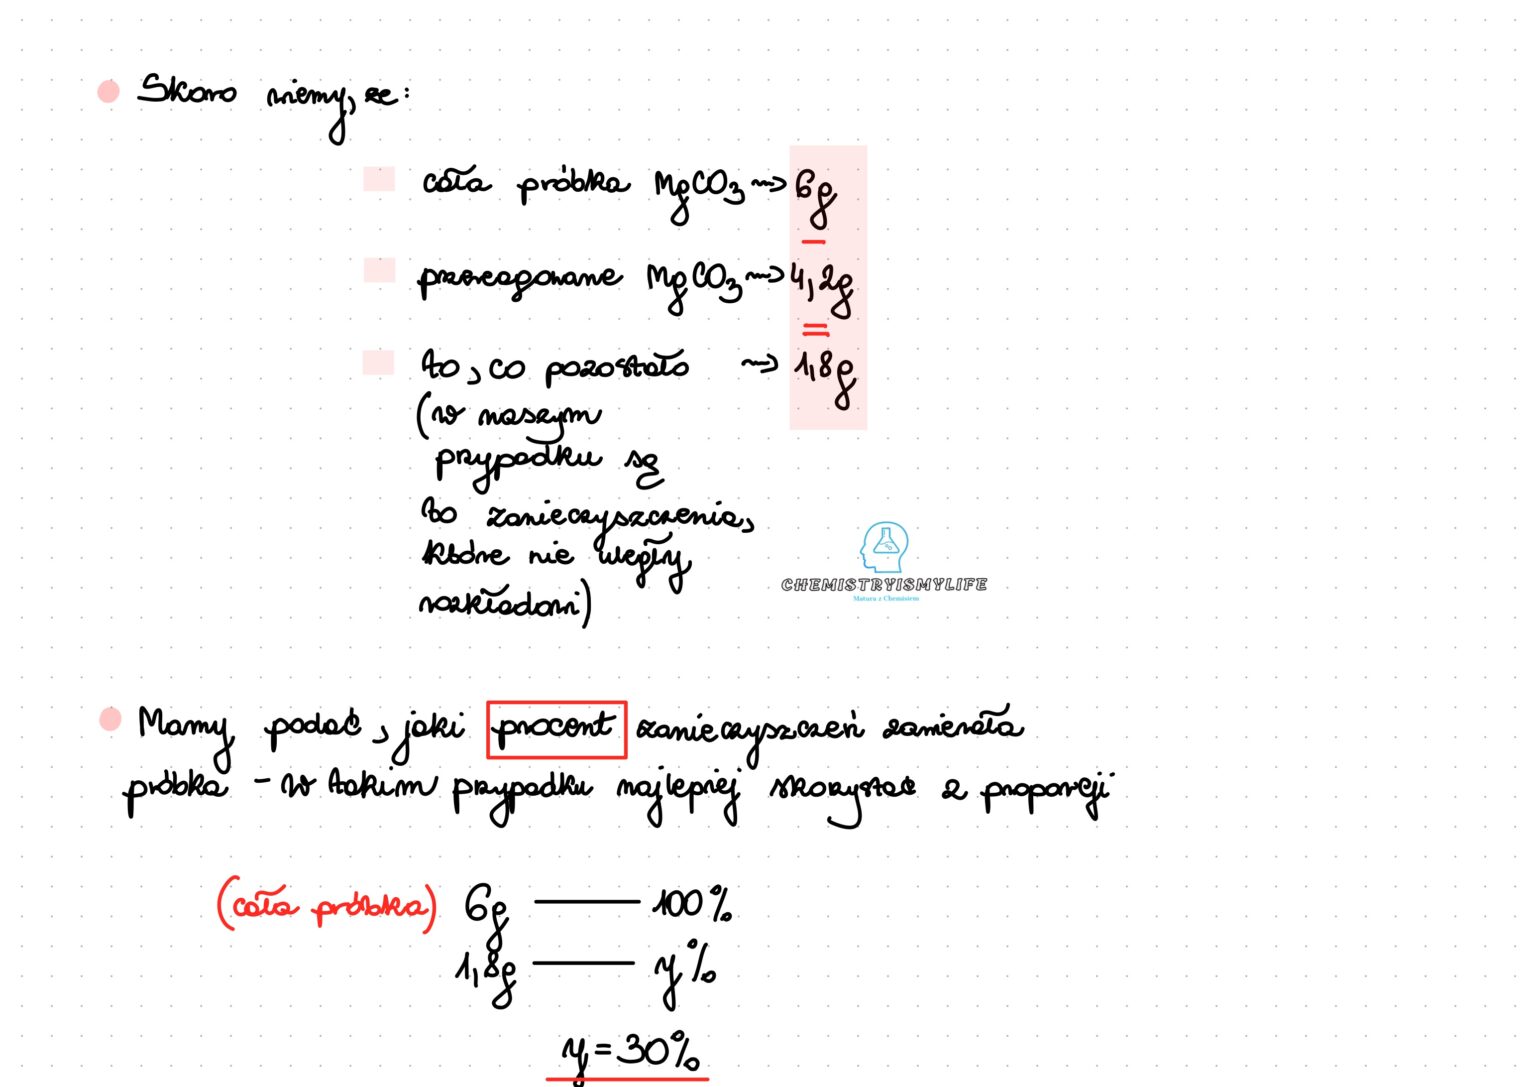 Skoro wiemy, że:
cała próbka MgCO3 ⇝ 6g
–
przereagowane MgCO3 ⇝ 4,2g
=
to, co pozostało ⇝ 1,8g
(w naszym
przypadku są
to zanieczyszczenia,
które nie uległy
rozkładowi)
CHEMISTRYISMYLIFE
Matura z Chemisiem
Mamy podać, jaki procent zanieczyszczeń zawierała
próbka – w takim przypadku najlepiej skorzystać z proporcji
(cała próbka) 6g —— 100%
1,8g —— y%
y = 30%